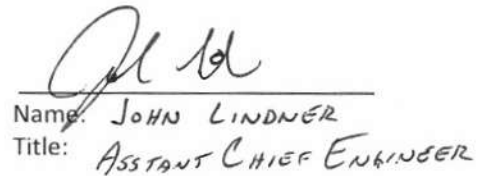 Name: JOHN LINDNER
Title: ASSTANT CHIEF ENGINEER